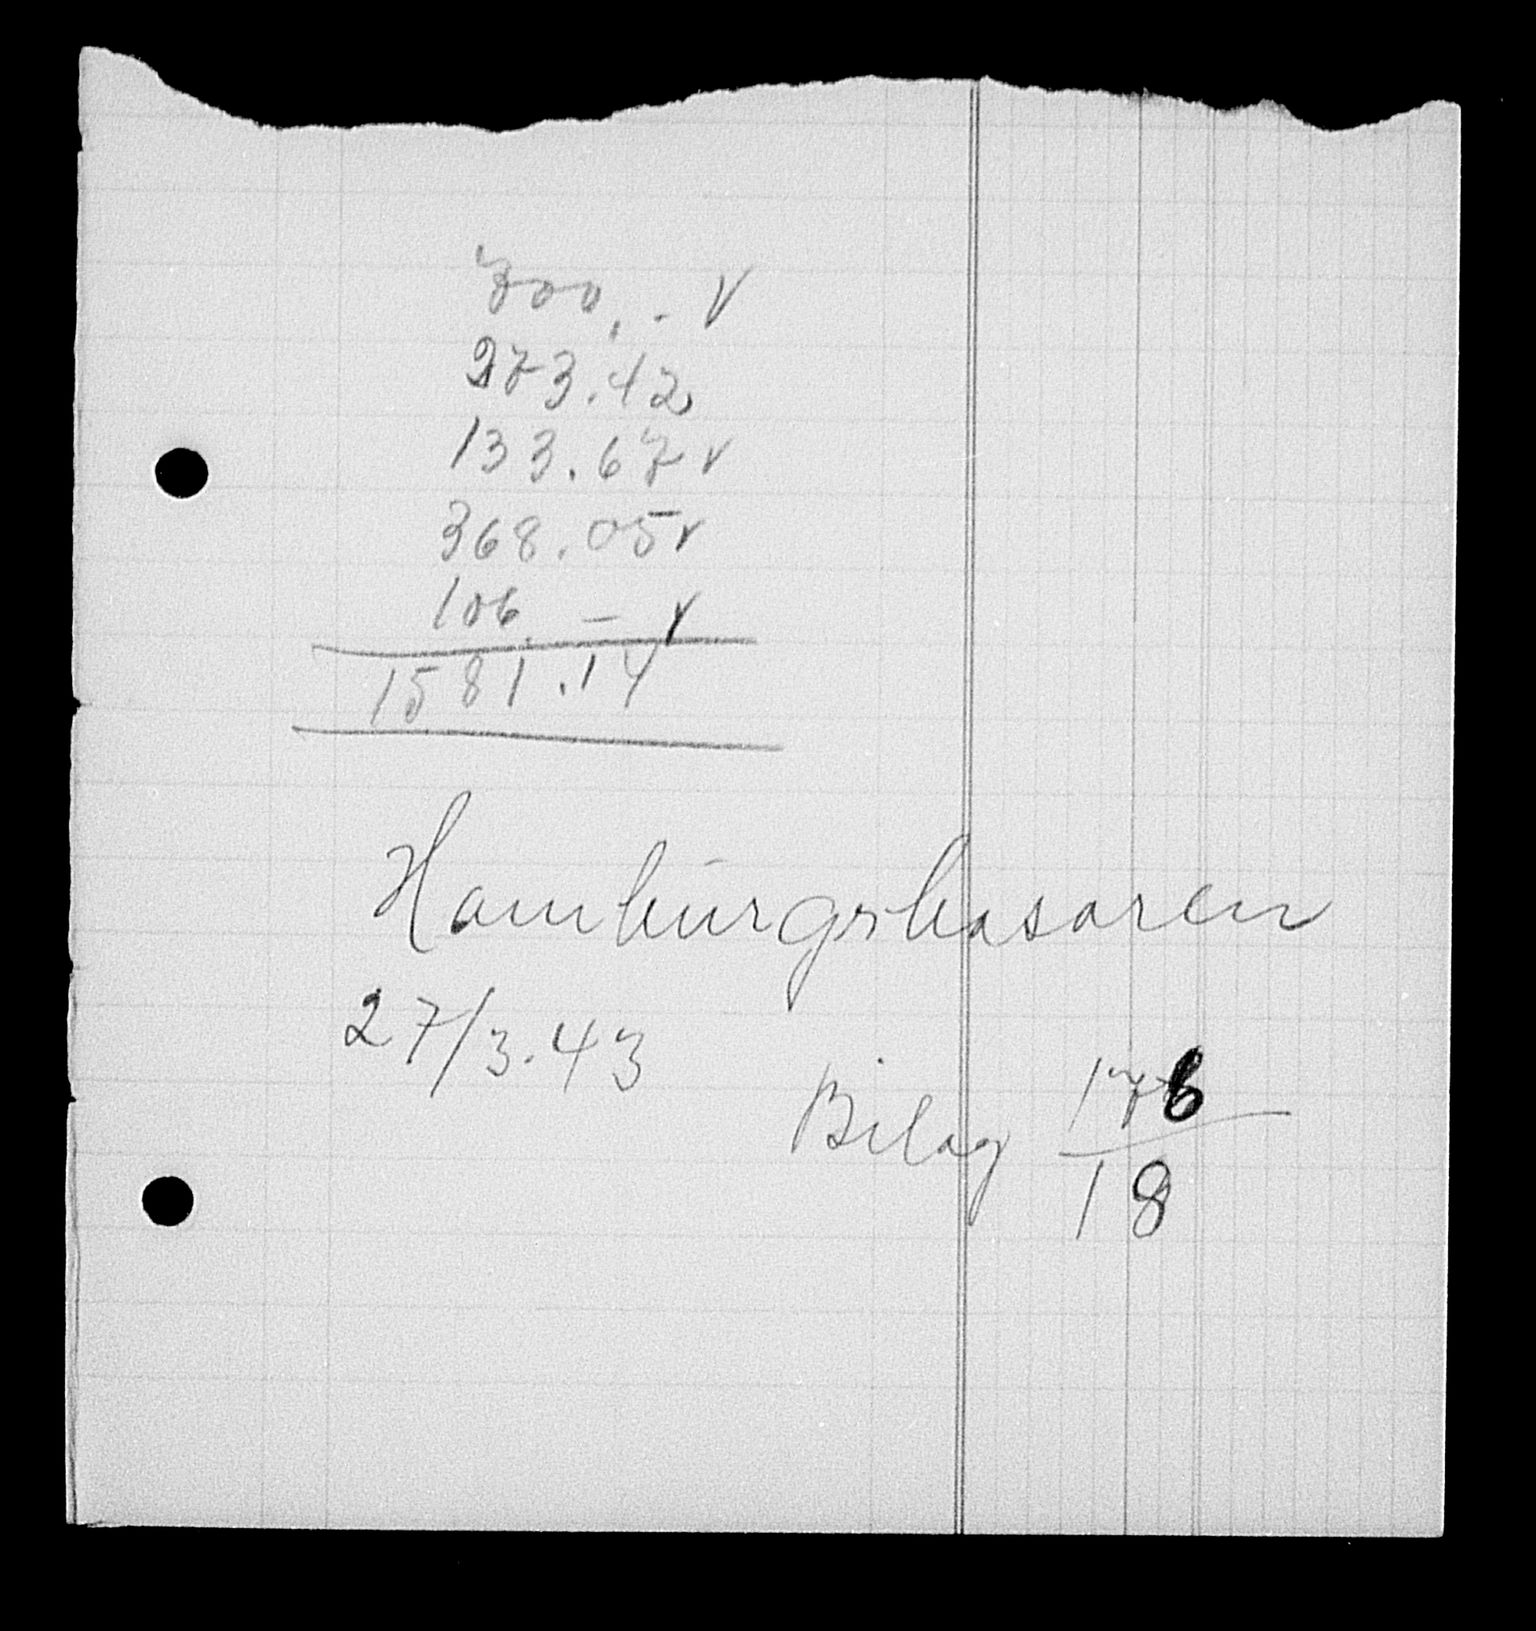 700,. ✓
273.42
133.67 ✓
368.05 ✓
106. – ✓
1581.14
Hamburgerbasaren
27/3.43
Bilag 176/18